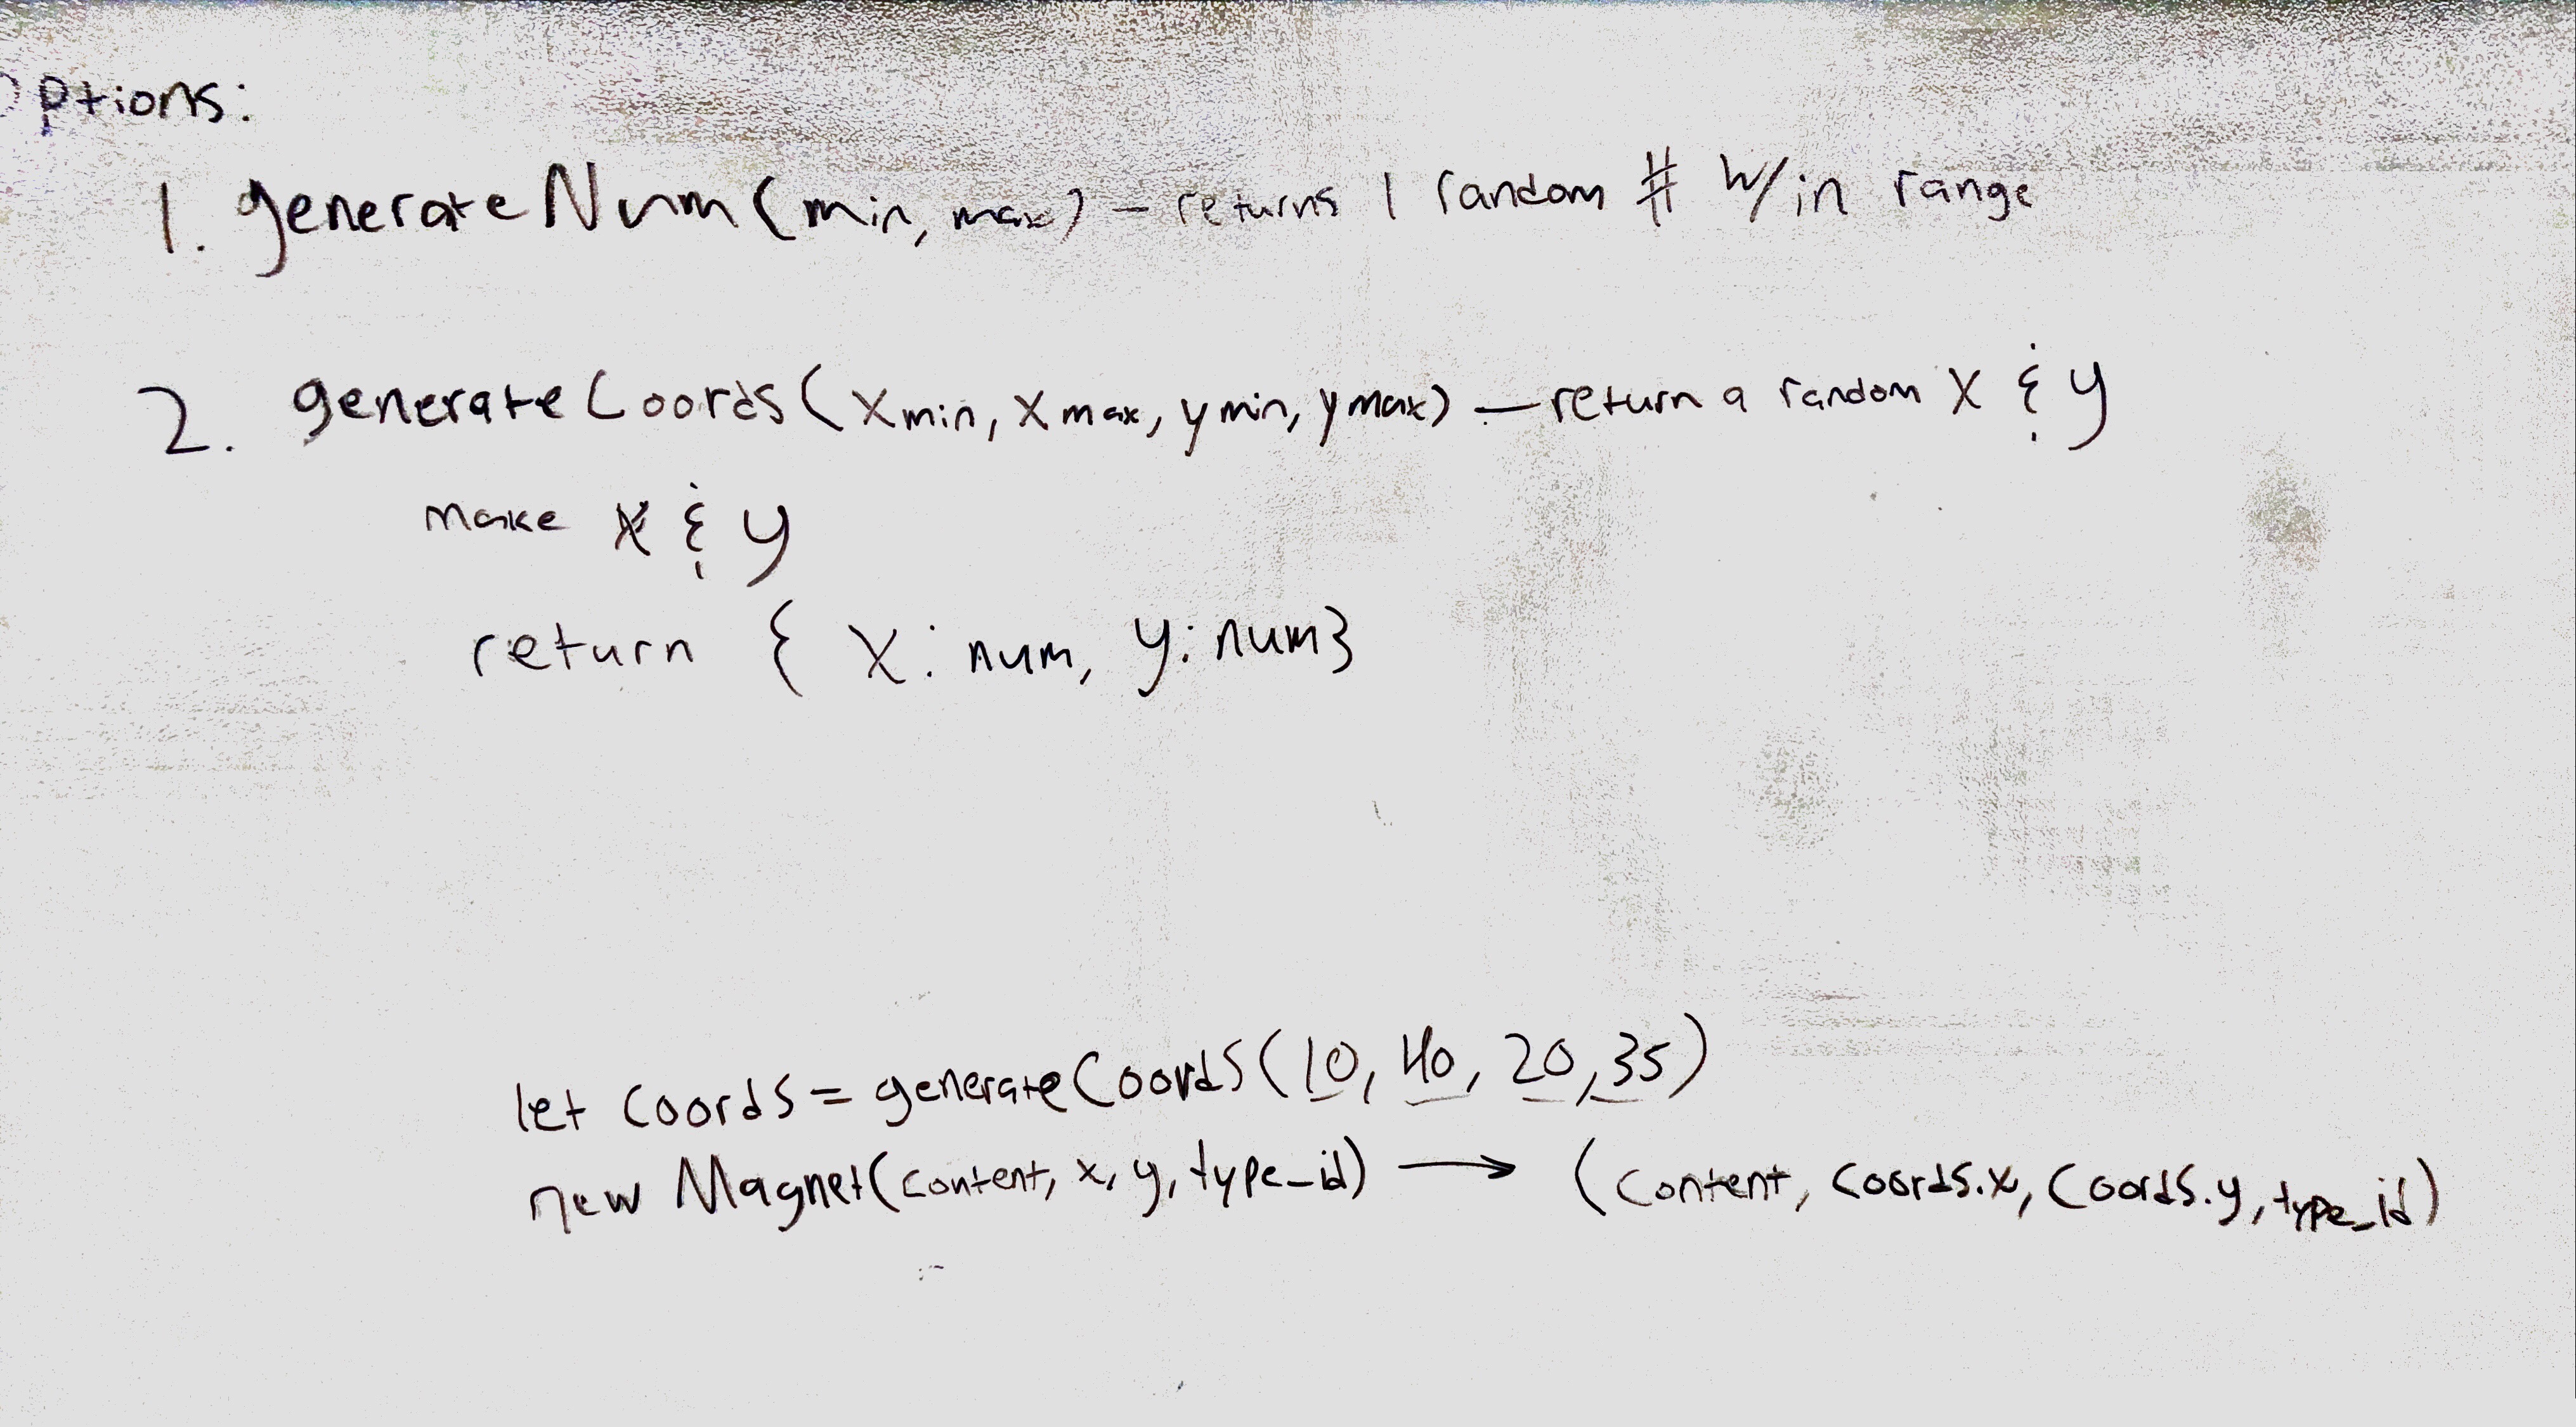 Options:
1. generateNum(min, max) – returns 1 random # w/in range
2. generateCoords(xmin, xmax, ymin, ymax) — return a random x & y
make x & y
return { x: num, y: num}
let coords = generateCoords(10, 40, 20, 35)
new Magnet(content, x, y, type_id) → (content, coords.x, coords.y, type_id)